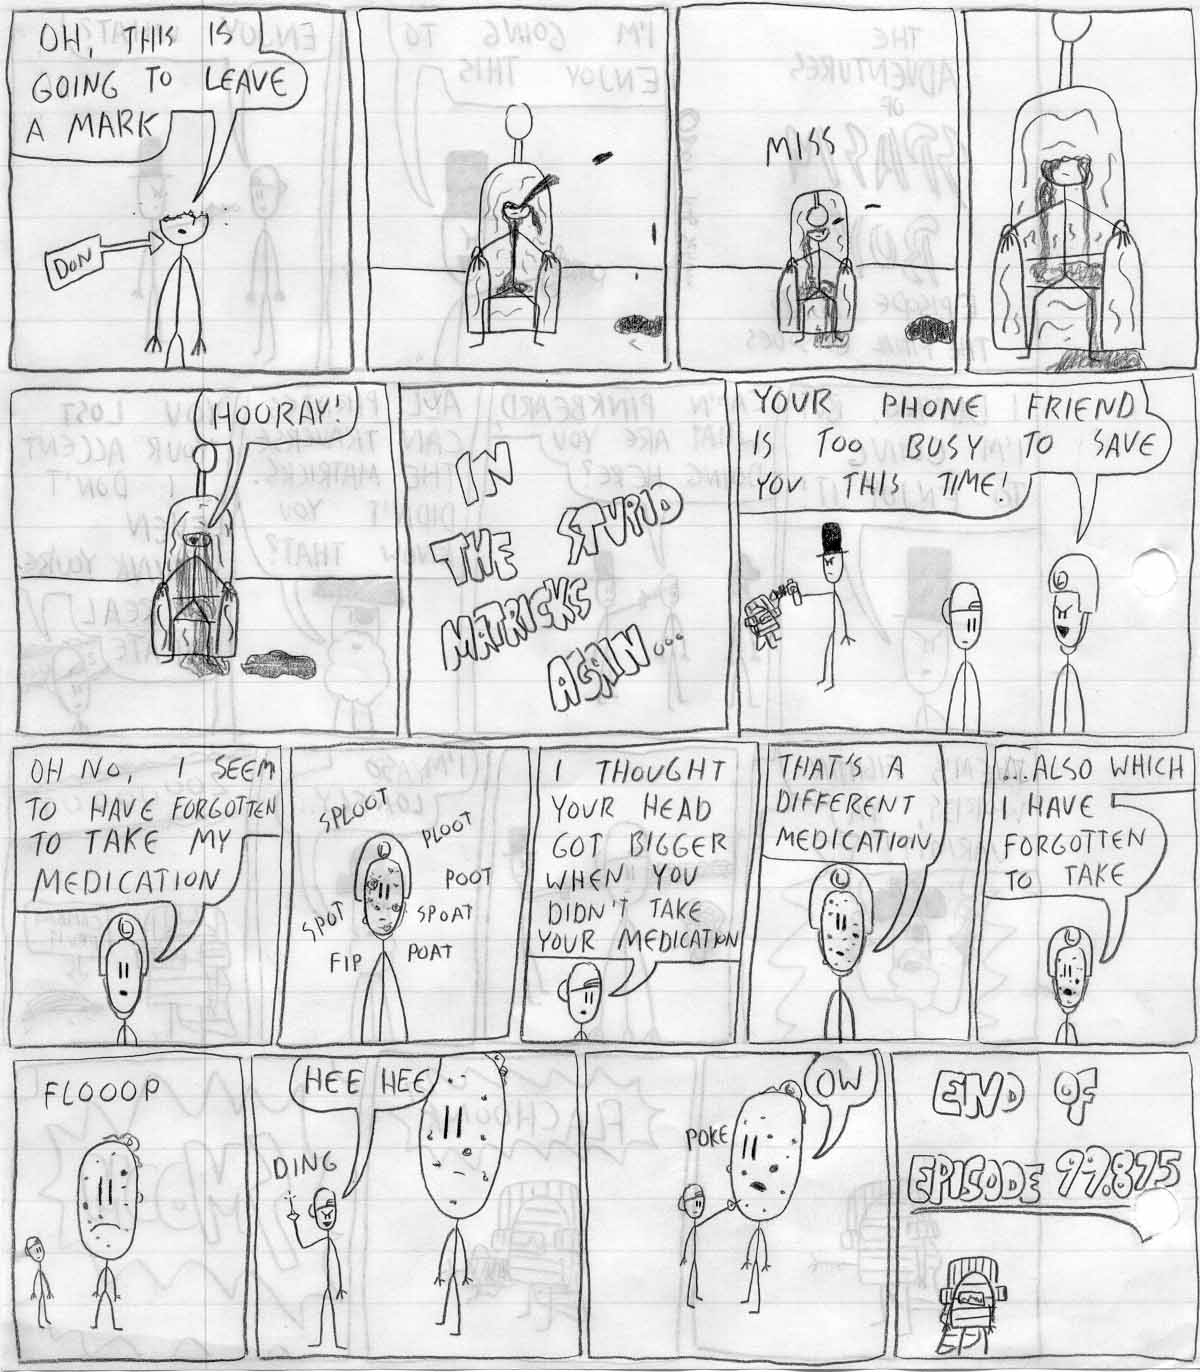 OH, THIS IS
GOING TO LEAVE
A MARK
DON
MISS
HOORAY!
IN
THE STUPID
MATRICKS
AGAIN...
YOUR PHONE FRIEND
IS TOO BUSY TO SAVE
YOU THIS TIME!
L
OH NO, I SEEM
TO HAVE FORGOTTEN
TO TAKE MY
MEDICATION
SPLOOT
PLOOT
POOT
SPOT
SPOAT
FIP
POAT
I THOUGHT
YOUR HEAD
GOT BIGGER
WHEN YOU
DIDN'T TAKE
YOUR MEDICATION
THAT'S A
DIFFERENT
MEDICATION
...ALSO WHICH
I HAVE
FORGOTTEN
TO TAKE
FLOOOP
HEE HEE
DING
POKE
OW
END OF
EPISODE 99.875